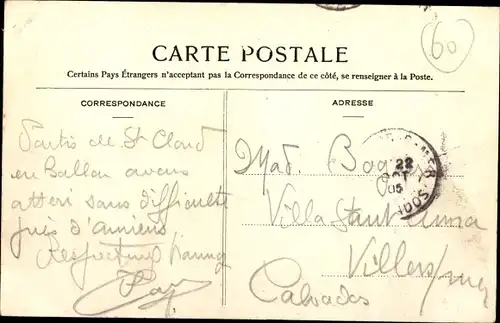 60
CARTE POSTALE
Certains Pays Étrangers n'acceptant pas la Correspondance de ce côté, se renseigner à la Poste.
CORRESPONDANCE
Partis de St Cloud
en Ballon avons
atteri sans difficulté
près d'amiens
Respectueux
ADRESSE
22
OCT
05
Mad.
Villa
Villers s/mer
Calvados